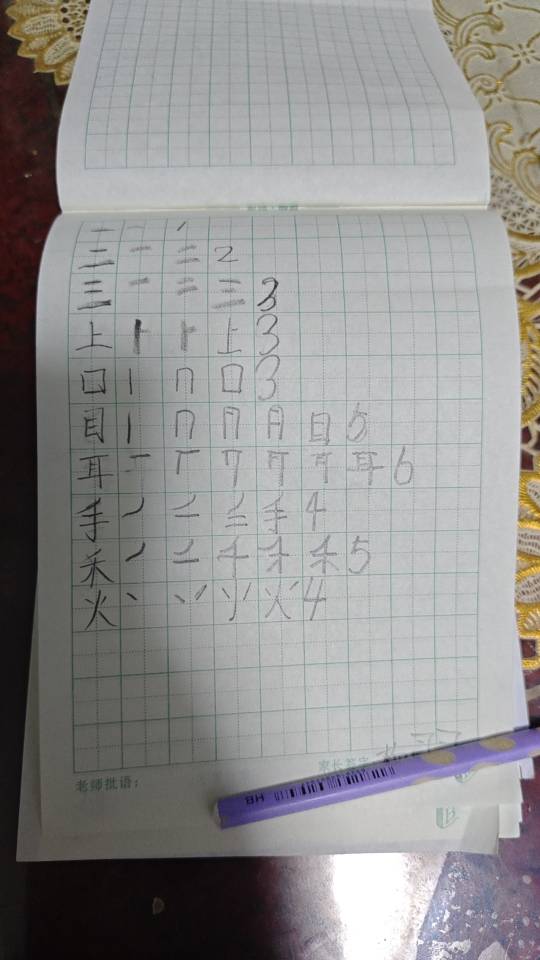 一 一 1
二 一 二 2
三 一 二 三 3
上 丨 ⺊ 上 3
口 丨 冂 口 3
目 丨 冂 月 月 目 5
耳 一 丆 耳 6
手 丿 二 三 手 4
禾 丿 二 千 禾 禾 5
火 丶 丷 火 4
老师批语：
家长签字
HB